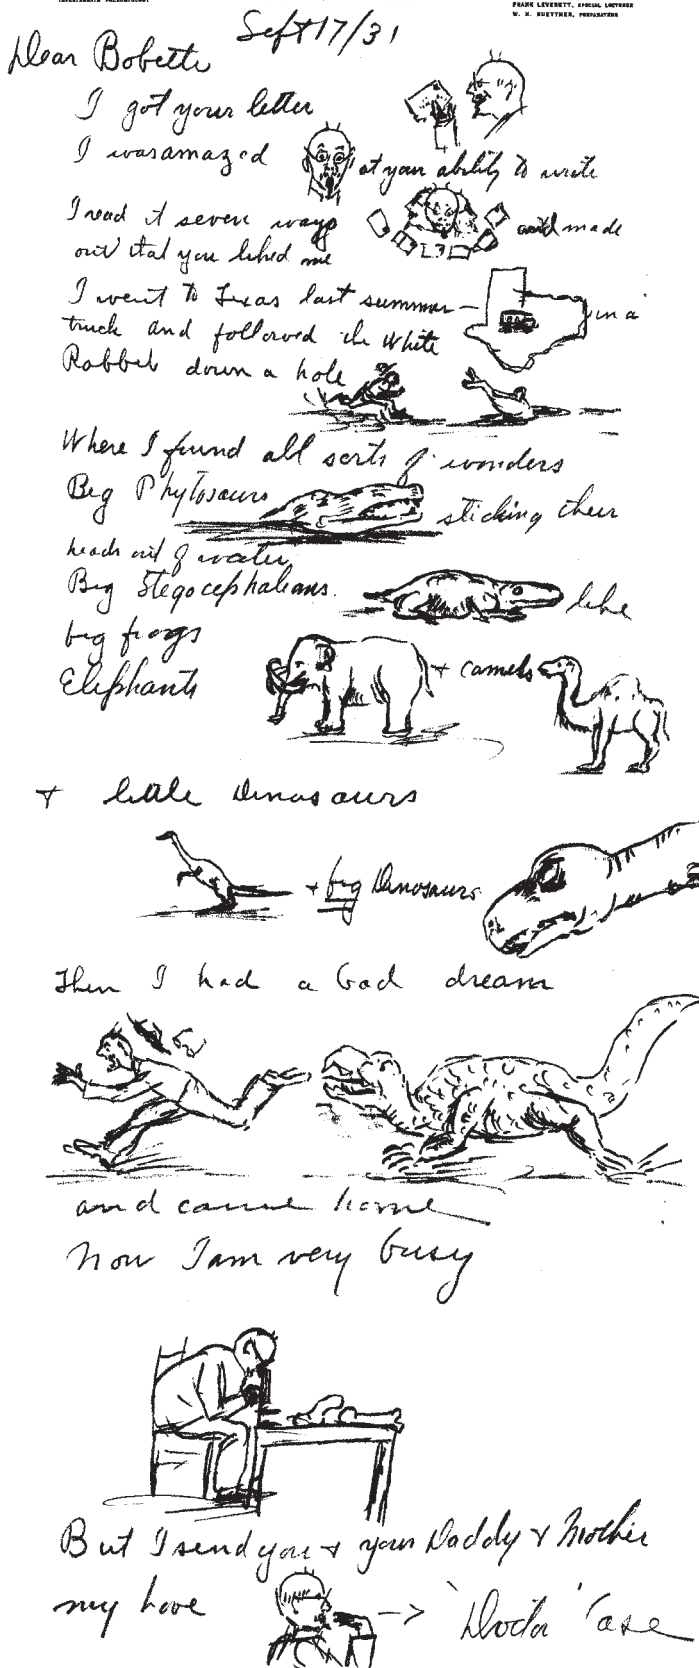 FRANK LEVERETT, SPECIAL LECTURER
W. H. BUETTNER, PREPARATEUR
Sept 17/31
Dear Bobette
I got your letter
I was amazed at your ability to write
I read it seven ways and made
out that you liked me
I went to Texas last summer — in a
truck and followed the White
Rabbit down a hole
Where I found all sorts of wonders
Big Phytosaurs sticking their
heads out of water
Big Stegocephalians. like
big frogs
Elephants + camels
+ little Dinosaurs
+ big Dinosaurs
Then I had a bad dream
and came home
Now I am very busy
But I send you + your Daddy + Mother
my love —> 'Doctor' Case